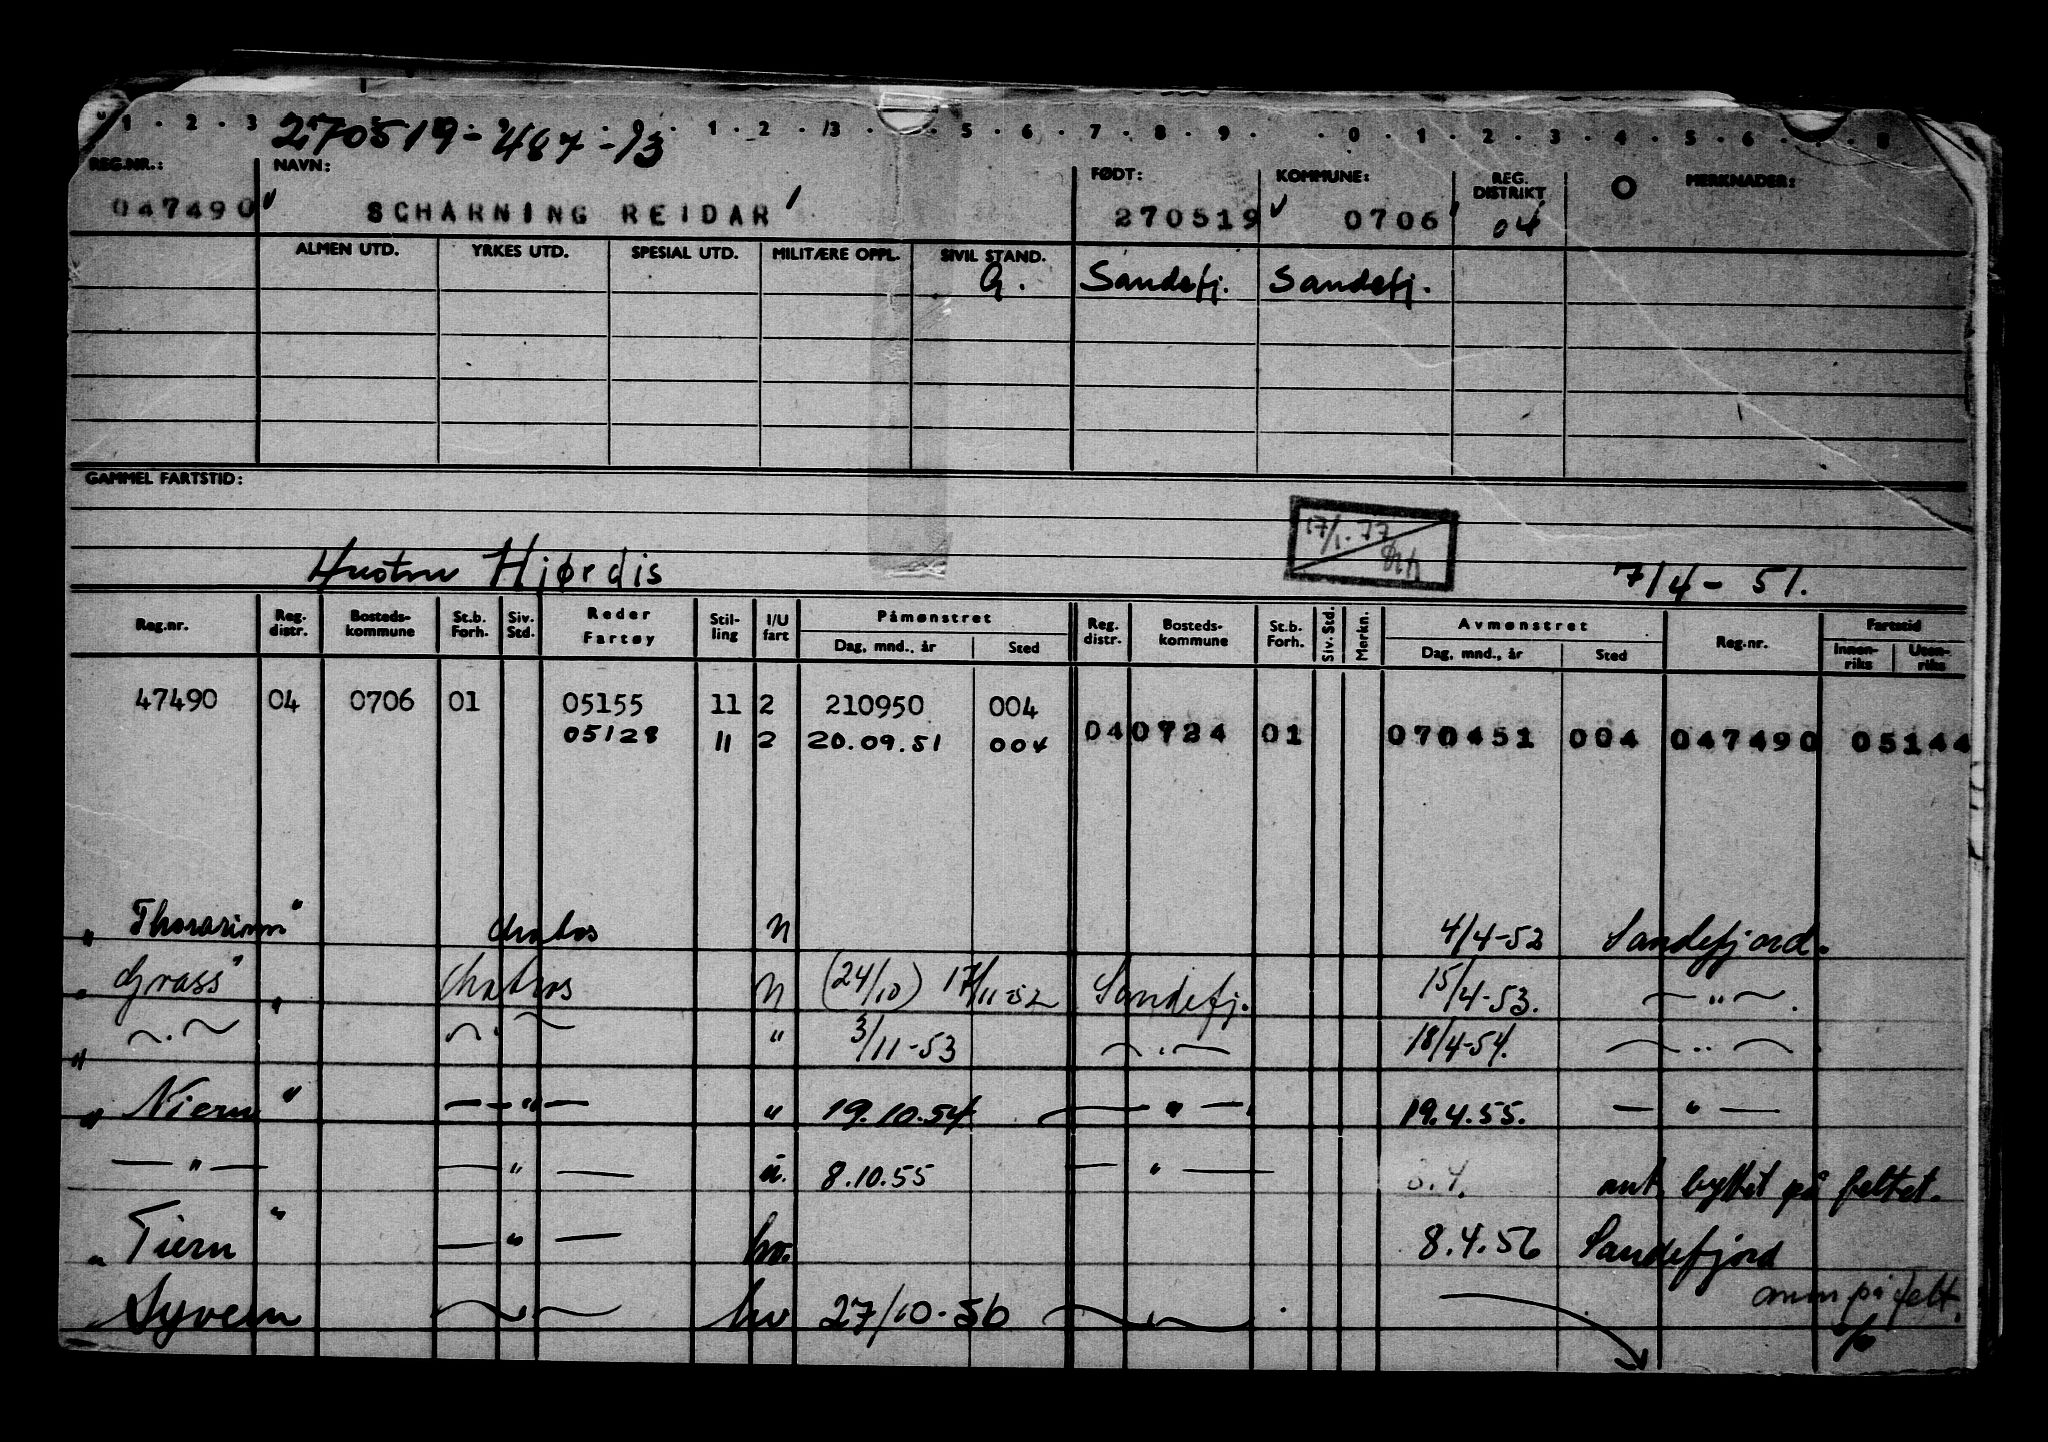 1 . 2 . 3 270519-487-13 . 1 . 2 . /3 . . 5 . 6 . 7 . 8 . 9 . . 0 . 1 . 2 . 3 . 4 . 5 . 6 . . . 8
REG.NR.: NAVN: FØDT: KOMMUNE: REG. DISTRIKT MERKNADER:
047490 SCHARNING REIDAR 270519 0706 04
ALMEN UTD. YRKES UTD. SPESIAL UTD. MILITÆRE OPPL. SIVIL STAND.
G. Sandefj. Sandefj.
GAMMEL FARTSTID:
17/1-77
Hustru Hjørdis 7/4-51.
Reg.nr. Reg. distr. Bosteds- kommune St.b. Forh. Siv. Std. Reder Fartøy Stil- ling I/U fart Påmønstret Dag, mnd., år Sted Reg. distr. Bosteds- kommune St.b. Forh. Siv. Std. Merkn. Avmønstret Dag, mnd., år Sted Reg.nr. Fartstid Innen- riks Uten- riks
47490 04 0706 01 05155 11 2 210950 004
05128 11 2 20.09.51 004 04 0724 01 070451 004 047490 05144
4/4-52 Sandefjord.
" Grass" (24/10) 17/11-52 Sandefj. 15/4-53. — " —.
— . — " — . — " 3/11-53 — . — 18/4-54. — .. —
" Niern " — " — " 19.10.54 — " — 19.4.55. — " —
— " — — " — u. 8.10.55 — " — byttet på feltet.
" Tiern " — " — hv. 8.4.56 Sandefjord
" Syvern — " — hv 27/10-56 — " — på felt.